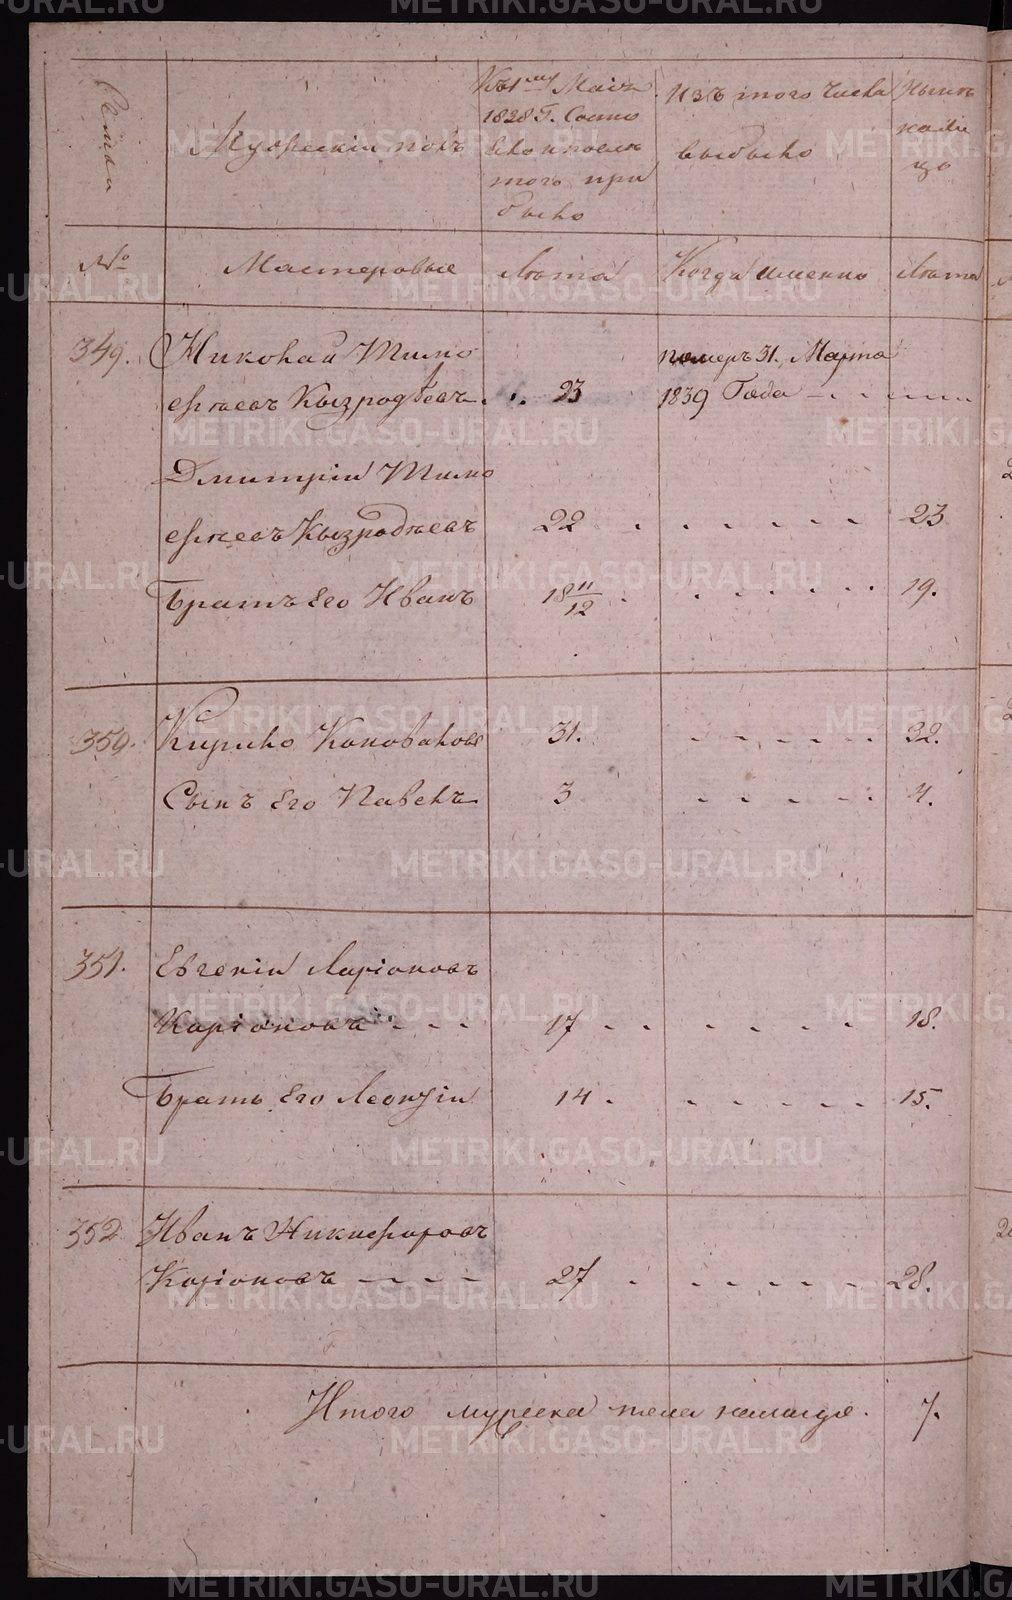 Семьи
Мужескiй полъ
Къ 1му Маiя
1838 Г. Состо
яло и после
того при
было
Изъ того числа
выбыло
Нынѣ
на ли
цо
№
Мастеровые
Лѣта
Когда именно
Лѣта
349.
Николай Тимо
феевъ Кызродѣевъ
23
померъ 31. Марта
1839 Года
Дмитрiй Тимо
феевъ Кызродѣевъ
22
23
Братъ Его Иванъ
18 11/12
19.
350.
Кирило Коновалов
31.
32.
Сынъ Его Павелъ
3
4.
351.
Евгенiй Ларiоновъ
Карiоновъ
17
18.
Братъ Его Леонтiй
14.
15.
352
Иванъ Никифоровъ
Карiоновъ
27
28.
Итого мужеска пола налицо.
7.
METRIKI.GASO-URAL.RU